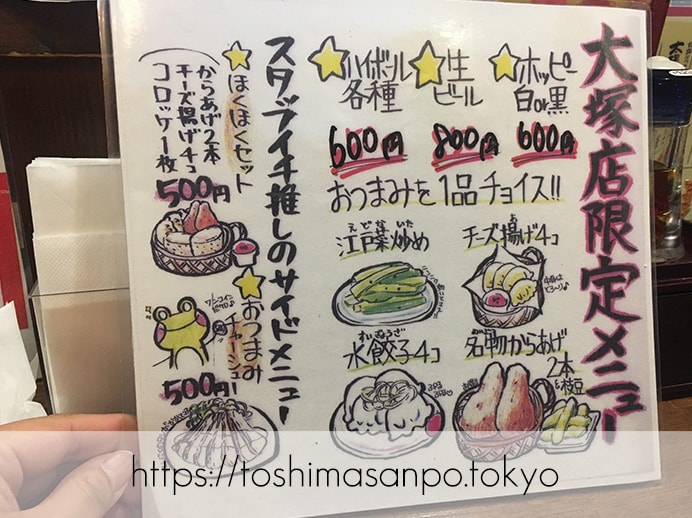 大塚店限定メニュー
☆ホッピー
白or黒
600円
☆生
ビール
800円
☆ハイボール
各種
600円
おつまみを1品チョイス!!
チーズ揚げ4コ
江戸菜炒め
えどな いた
名物からあげ
2本
&枝豆
水餃子4コ
すいぎょうざ
スタッフイチ推しのサイドメニュー
☆ほくほくセット
からあげ2本
チーズ揚げ4コ
コロッケ一枚
500円
☆おつまみ
チャーシュー
500円
https://toshimasanpo.tokyo